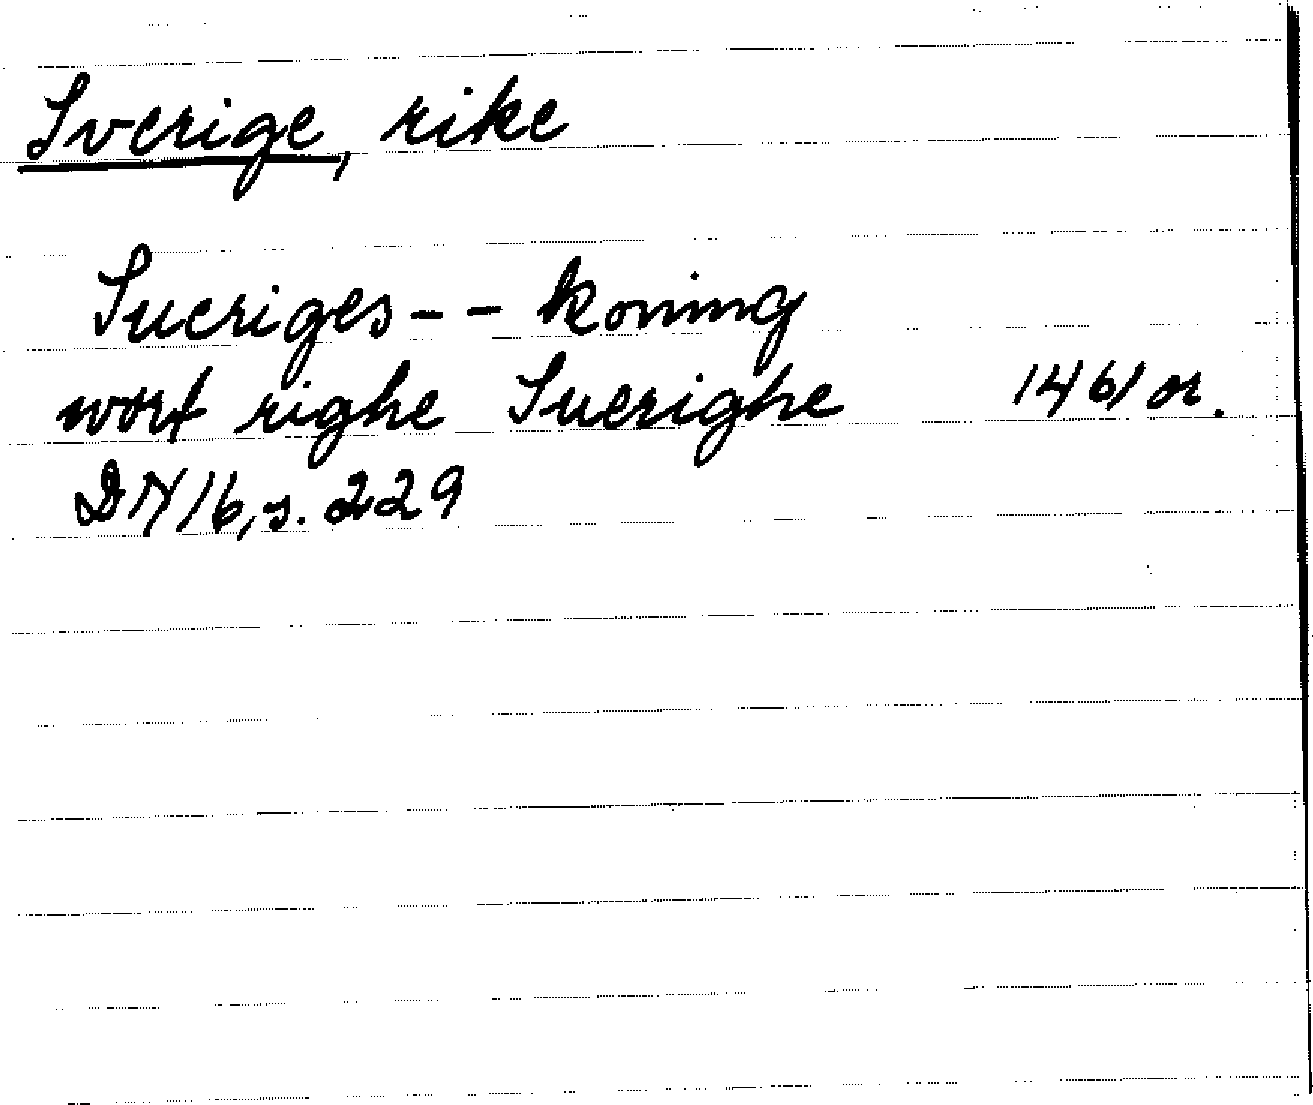 Sverige, rike
Sueriges - - koning
wort righe Suerighe 1461 or.
DN 16, s. 229